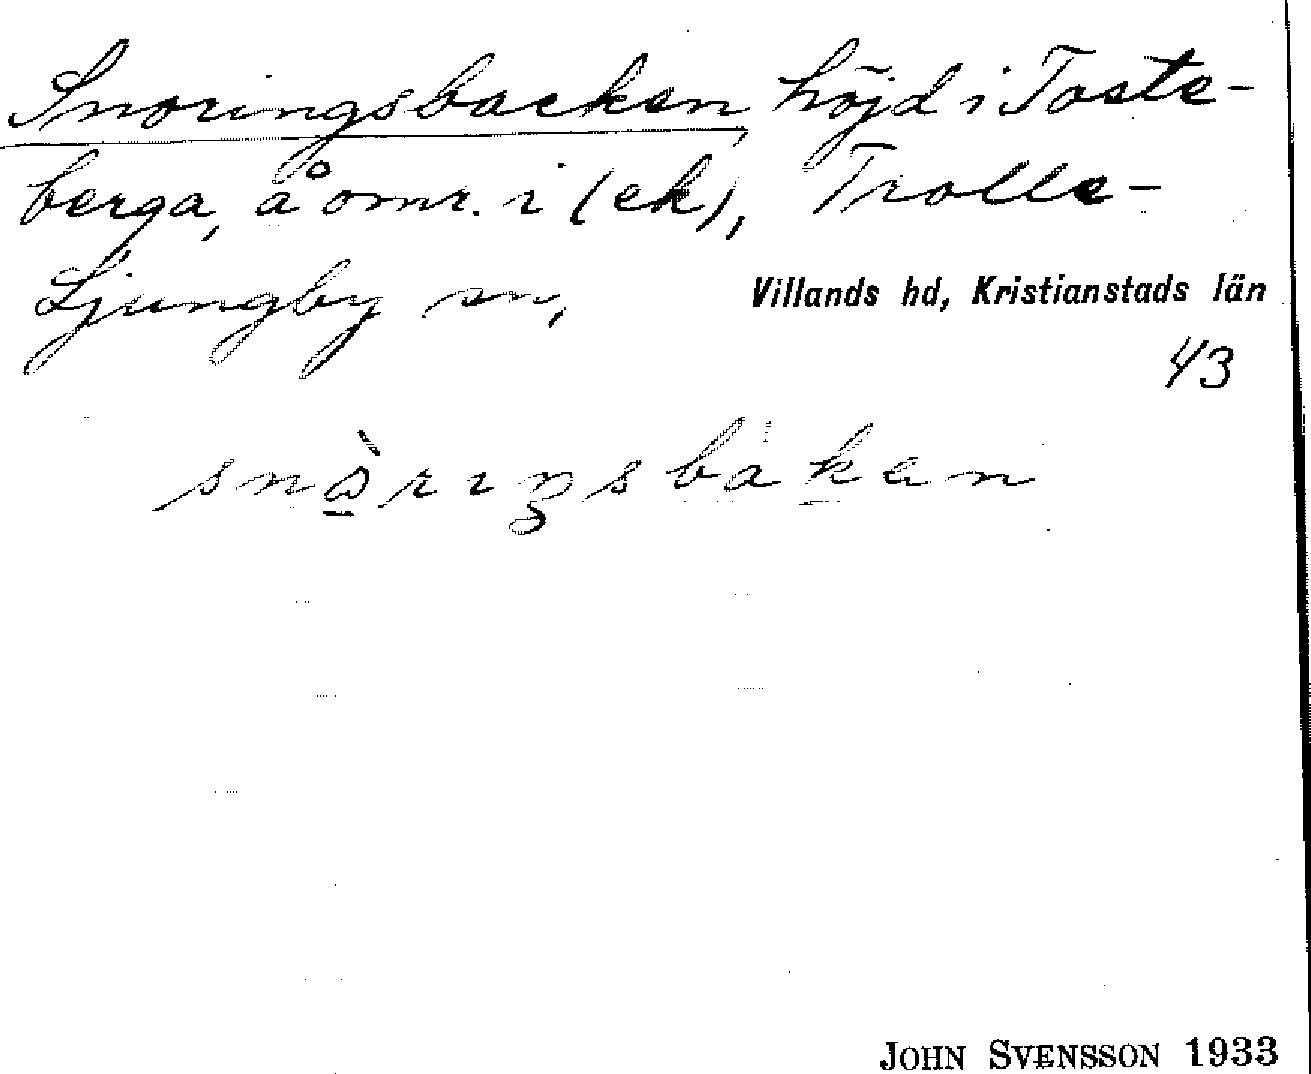 Snoringsbacken, höjd i Toste-
berga, å omr. i (ek), Trolle-
Ljungby sn, Villands hd, Kristianstads län
43
JOHN SVENSSON 1933